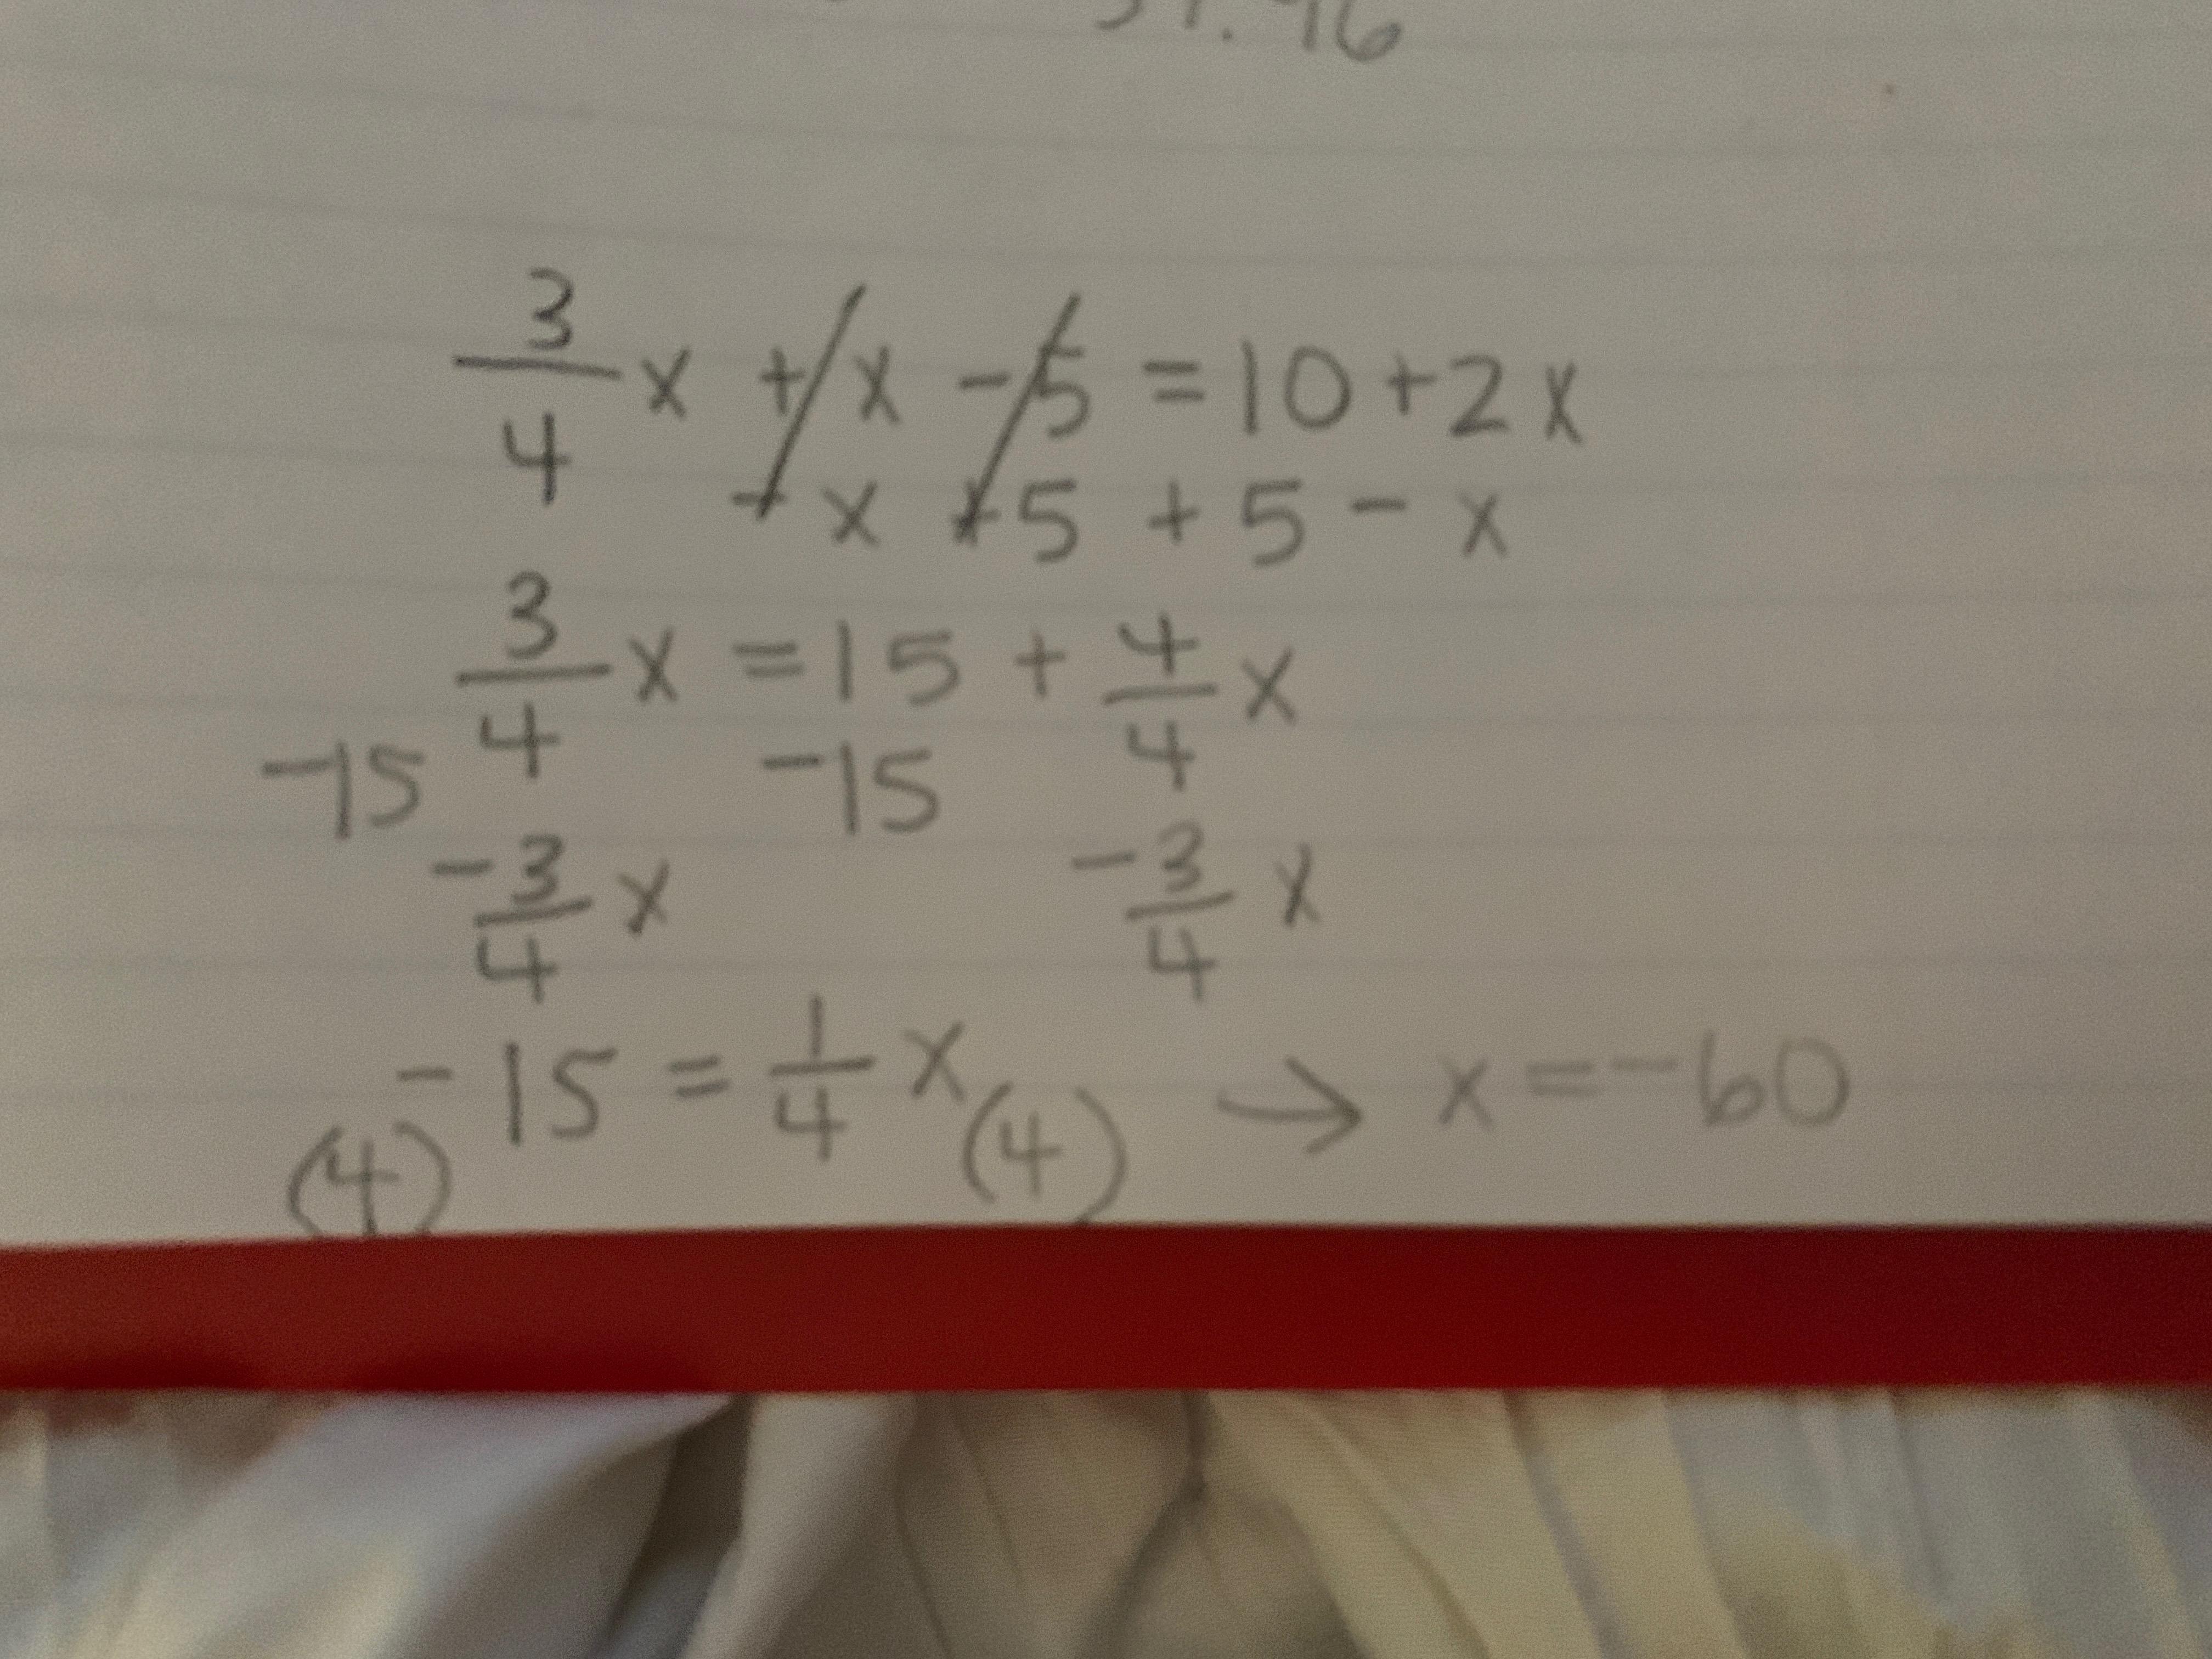 3/4 x + x - 5 = 10 + 2x
- x + 5 + 5 - x
3/4 x = 15 + 4/4 x
-15 -15
-3/4 x -3/4 x
-15 = 1/4 x → x = -60
(4) (4)